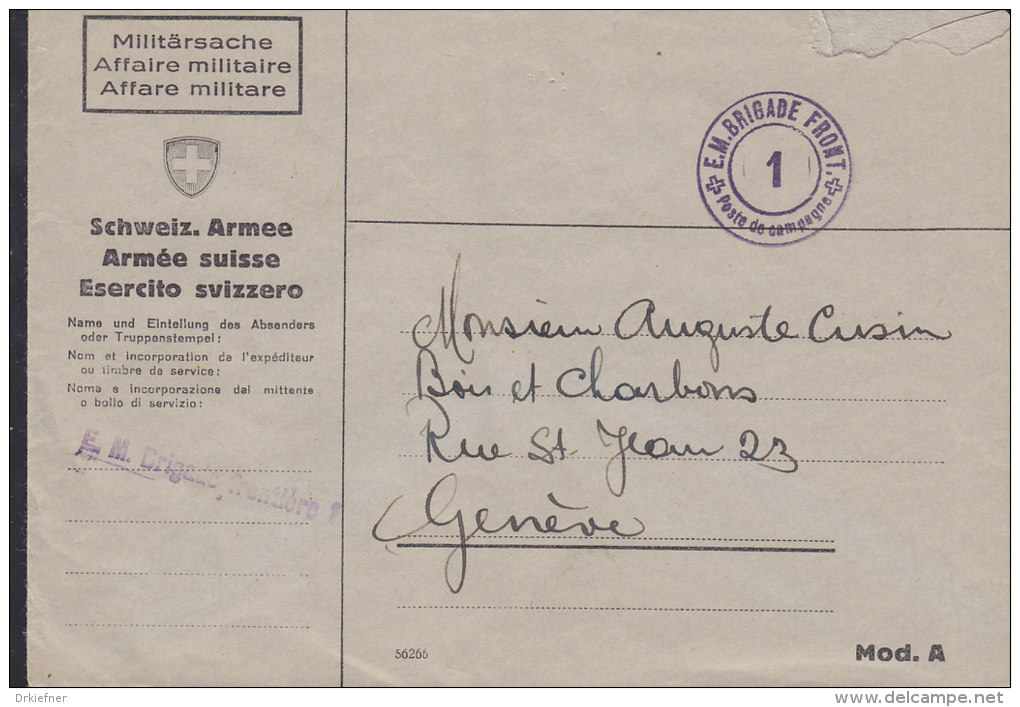 Militärsache
Affaire militaire
Affare militare
Schweiz. Armee
Armée suisse
Esercito svizzero
Name und Einteilung des Absenders
oder Truppenstempel:
Nom et incorporation de l'expéditeur
ou timbre de service:
Nome e incorporazione del mittente
o bollo di servizio:
E. M. Brigade frontière 1
E.M. BRIGADE FRONT.
1
Poste de campagne
Monsieur Auguste Cusin
Bois et Charbons
Rue St. Jean 23
Genève
56266
Mod. A
Drkiefner
www.delcampe.net